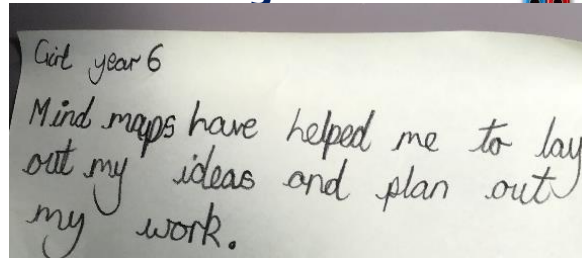 Girl year 6
Mind maps have helped me to lay
out my ideas and plan out
my work.